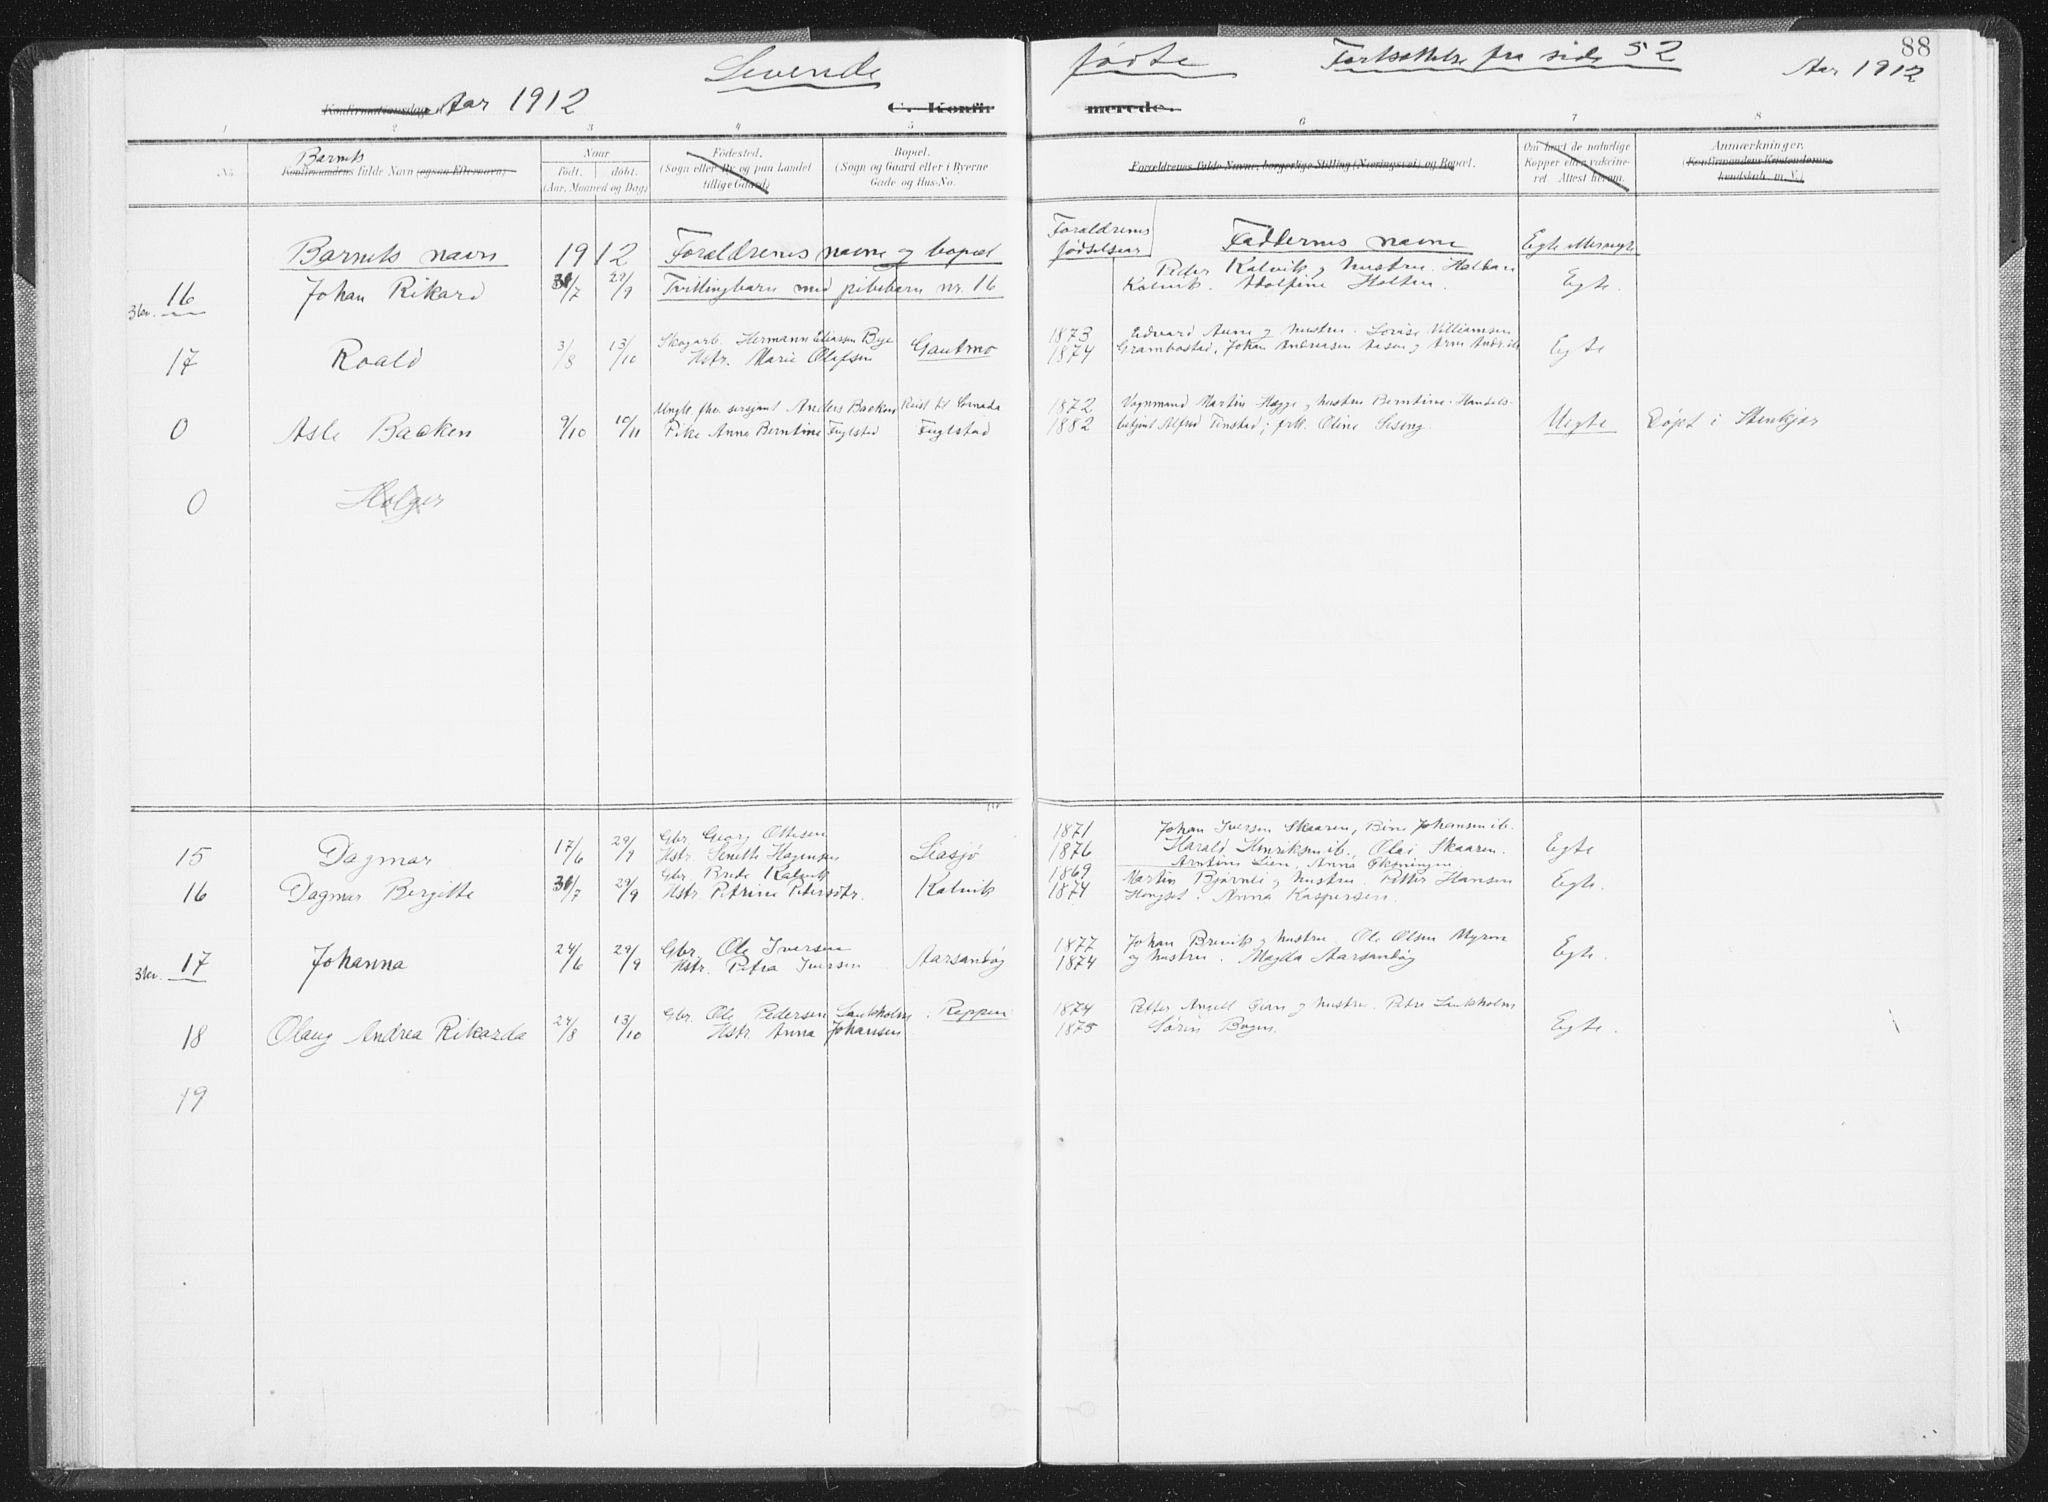 Levende fødte Fortsættelse fra side 52 88
Aar 1912
Konfirmationsdag Aar 1912 C. Konfir merede.
1 2 3 4 5 6 7 8
No
Barnets
Konfirmandens fulde Navn (ogsaa Efternavn)
Naar
født. døbt.
(Aar, Maaned og Dag)
Fødested.
(Sogn eller By og paa Landet
tillige Gaard)
Bopæl.
(Sogn og Gaard eller i Byerne
Gade og Hus-No.
Forældrenes fulde Navne, borgerlige Stilling (Næringsvei) og Bopæl.
Om havt de naturlige
Kopper eller vaccine-
ret. Attest herom.
Anmærkninger.
(Konfirmandens Kristendoms-
kundskab, m. V.)
Barnets navn 1912 Forældrenes navne og bopæl
Forældrenes
fødselsaar
Faddernes navne Egte
3lev. 16 Johan Rikard 31/7 29/9 Tvillingbarn med pikebarn nr. 16
Peder Kalvik og hustru.
Kalvik. Adolfine Holten. Egte.
17 Roald 3/8 13/10
Skogarb. Hermann Eliassen Bye
Hstr. Marie Olafsen Gautmo
1873 Edvard Aune og hustru. Lovise Villiamsen
1874 Grambostad, Johan Andreasen Aasen og Egte
0 Asle Backen 9/10 10/11
Ungk. fhv. sersjant Anders Backen Reist til
Pike Anna Berntine Fuglstad Fuglstad
1872 Vognmand Martin Hegge og hustru Berntine. Handels-
1882 betjent Alfred Tinstad; frk. Oline Sesseng. Uegte Døpt i Stenkjær
0 Holger
15 Dagmar 17/6 29/9
Gbr. Georg Ottesen
Hstr. Senette Hagensen Liasjø
1871 Johan Iversen Skaaren, Bine Johansen ib.
1876 Harald Henriksen ib. Olai Skaaren. Egte
Arntine Lien, Anna Øksningen.
16 Dagmar Bergitte 31/7 29/9
Gbr. Brede Kalvik
Hstr. Petrine Petersdtr. Kalvik
1869 Martin Bjørnli og hustru. Petter Hansen
1874 Hongset. Anna Kaspersen. Egte.
3lev. 17 Johanna 24/6 29/9
Gbr. Ole Iversen
Hstr. Petra Iversen Aarsandøy
1877 Johan Brevik og hustru, Ole Olsen Myren
1874 og hustru. Magda Aarsandøy Egte.
18 Olaug Andrea Rikarda 24/8 13/10
Gbr. Ole Pedersen Lauksholm. Reppen
Hstr. Anna Johansen
1874 Petter Angell og hustru. Petre Lauksholm
1875 Søren Bogen. Egte.
19